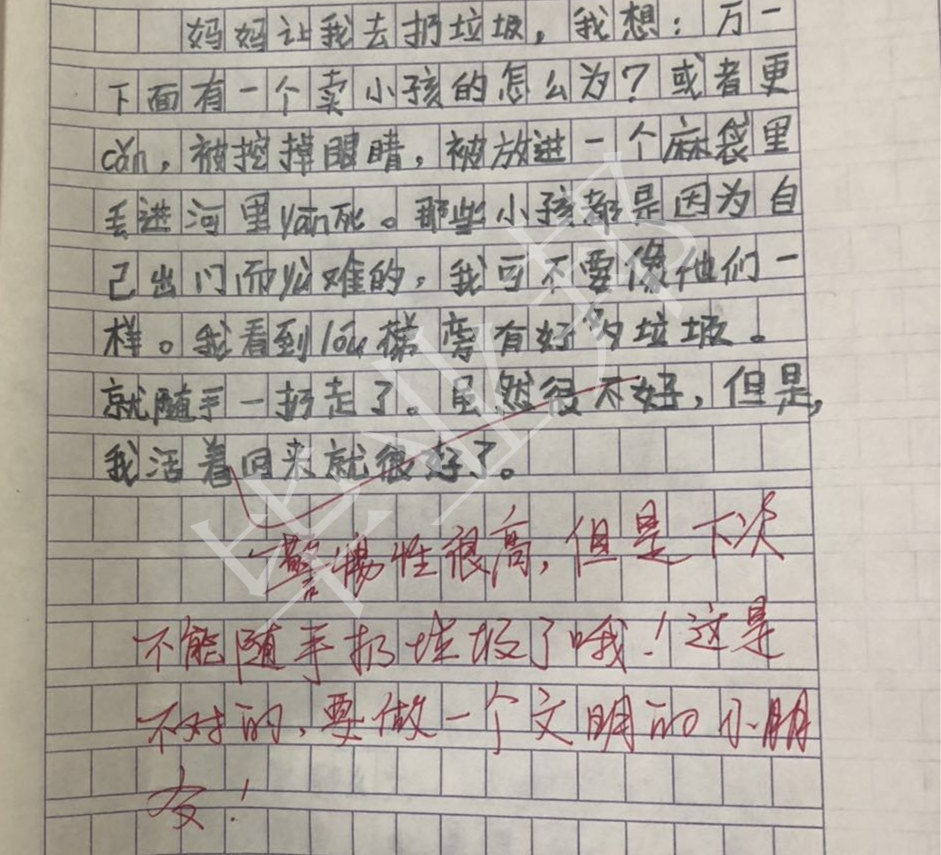 妈妈让我去扔垃圾，我想：万一
下面有一个卖小孩的怎么为？或者更
cǎn，被挖掉眼睛，被放进一个麻袋里
丢进河里yān死。那些小孩都是因为自
己出门而难的，我可不要像他们一
样。我看到lóu梯旁有好多垃圾。
就随手一扔走了。虽然很不好，但是，
我活着回来就很好了。
警惕性很高，但是下次
不能随手扔垃圾了哦！这是
不对的，要做一个文明的小朋
友！